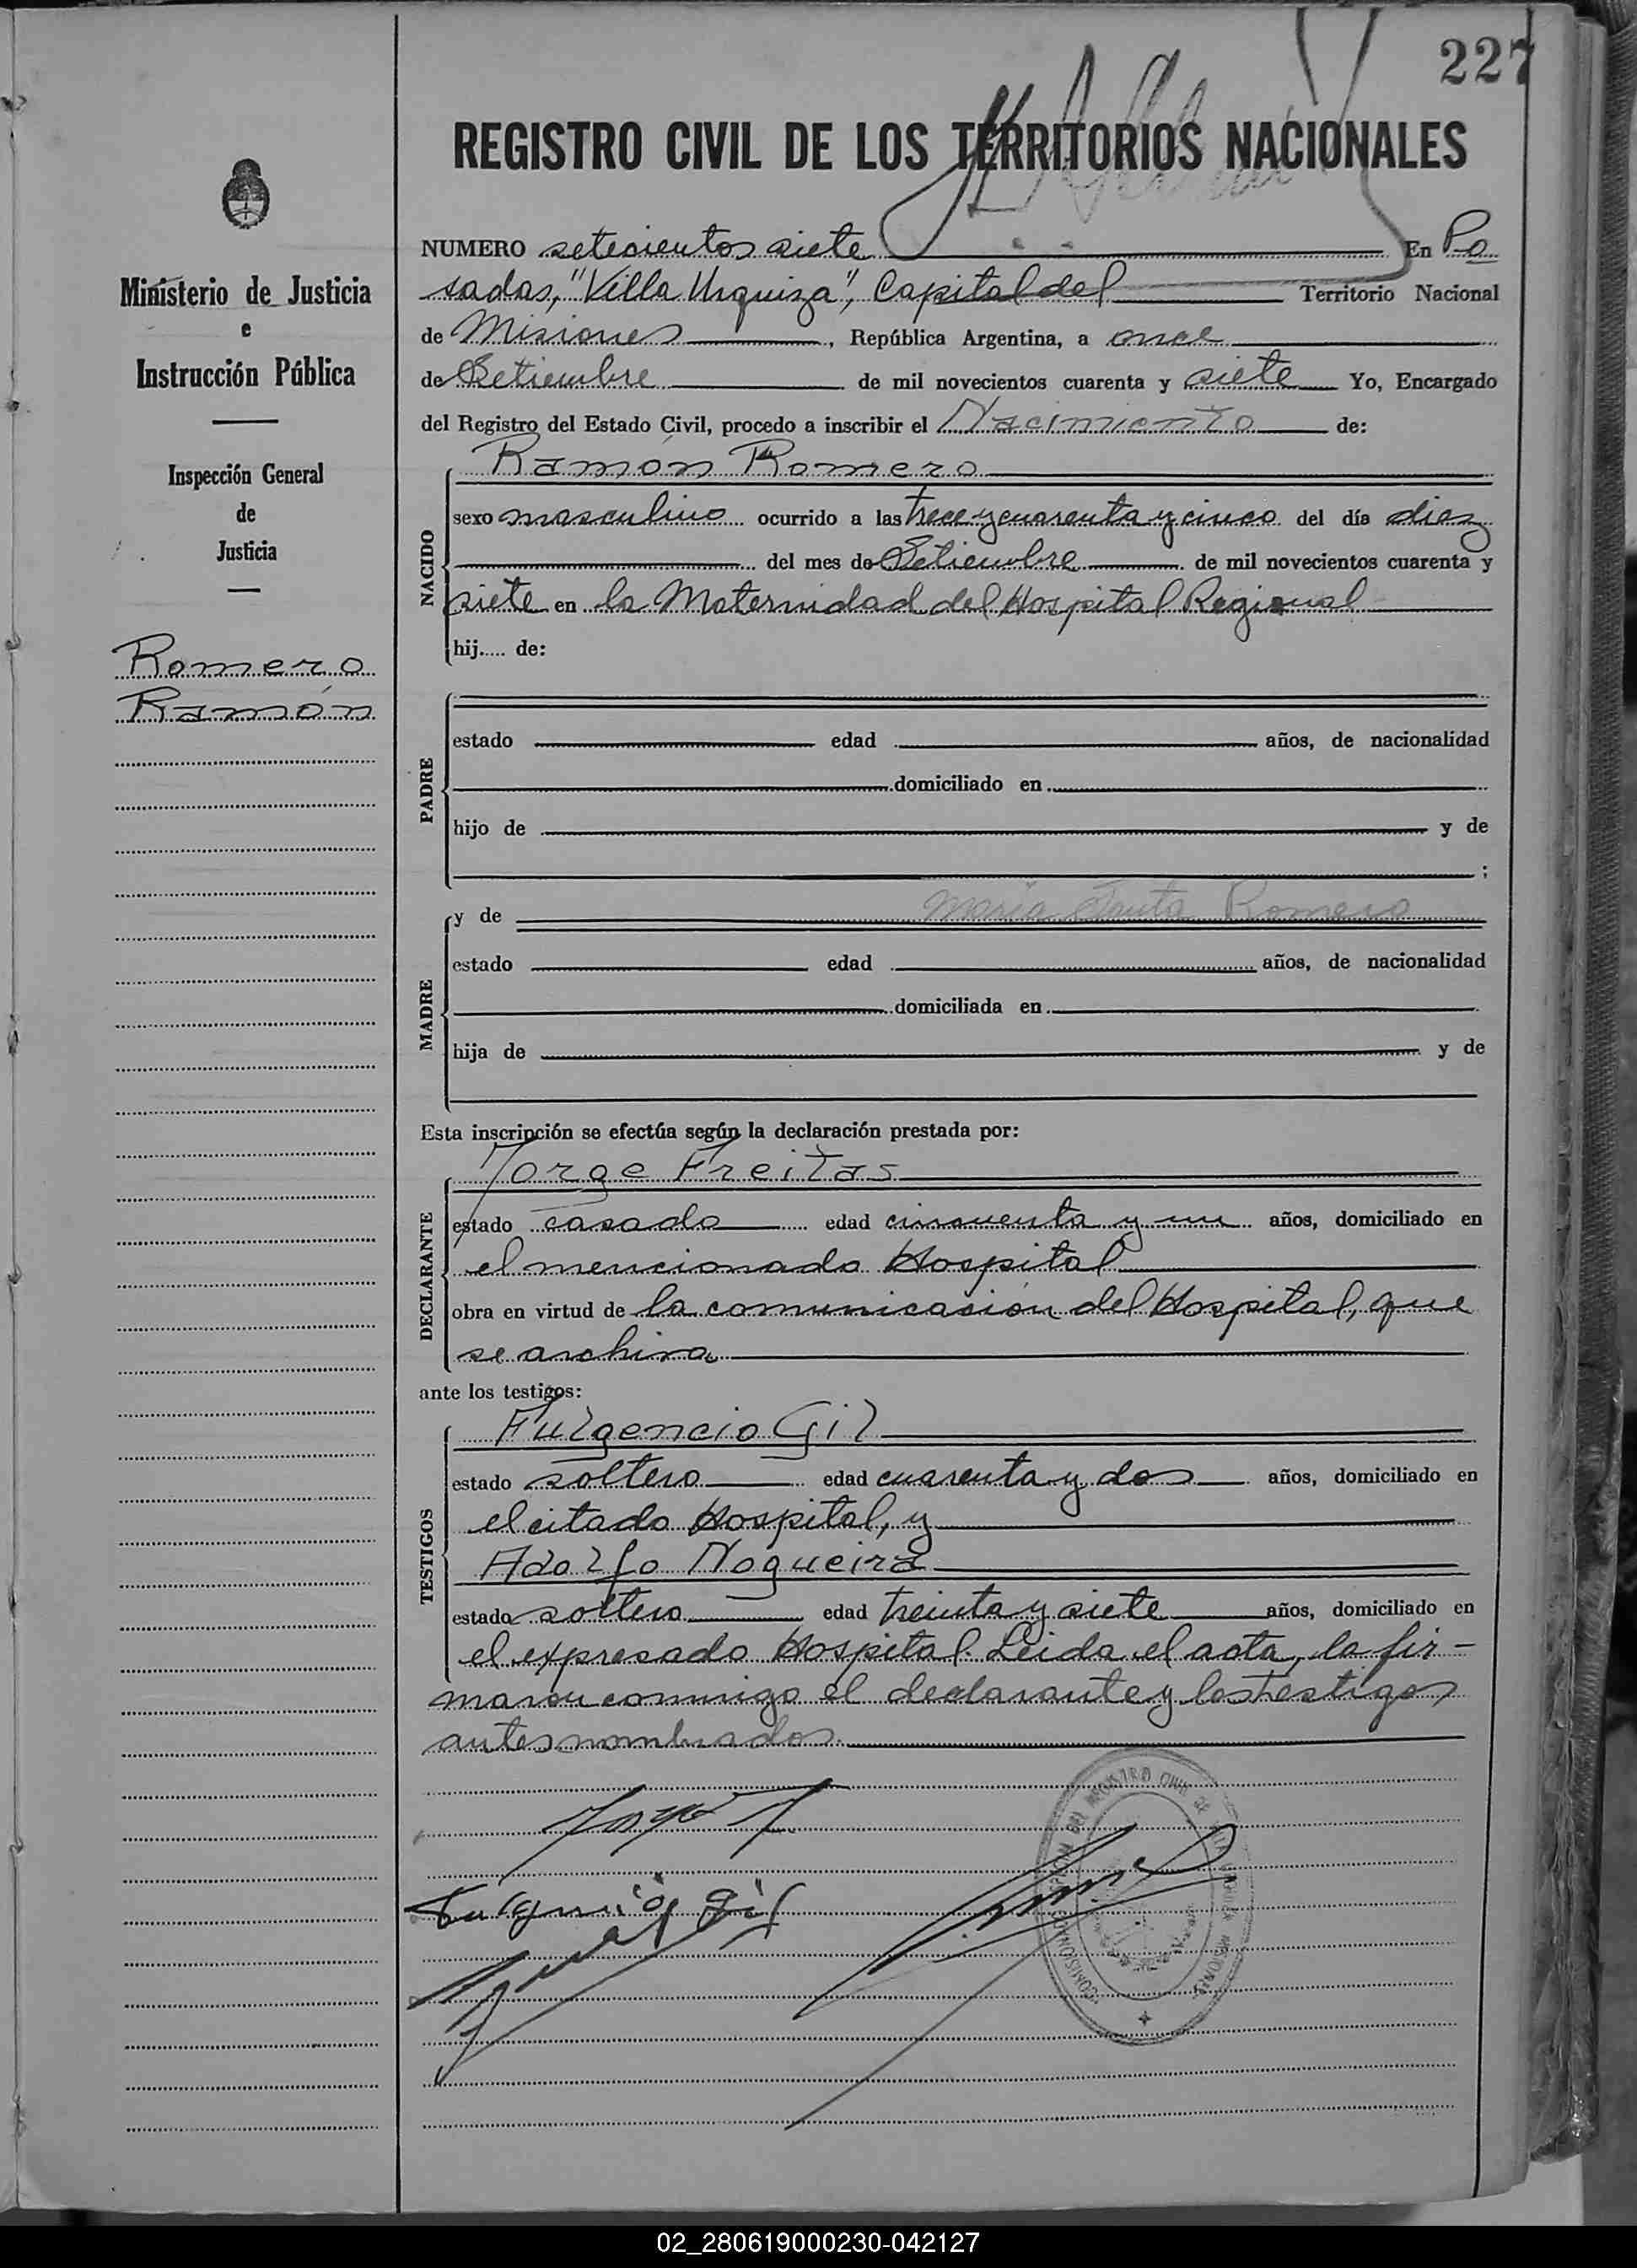 227
REGISTRO CIVIL DE LOS TERRITORIOS NACIONALES
Ministerio de Justicia
e
Instrucción Pública
Inspección General
de
Justicia
Romero
Ramón
NUMERO setecientos siete En Po
sadas, "Villa Urquiza", Capital del Territorio Nacional
de Misiones, República Argentina, a once
de Setiembre de mil novecientos cuarenta y siete Yo, Encargado
del Registro del Estado Civil, procedo a inscribir el Nacimiento de:
Ramón Romero
NACIDO
sexo masculino ocurrido a las trece y cuarenta y cinco del día diez
del mes de Setiembre de mil novecientos cuarenta y
siete en la Maternidad del Hospital Regional
hij..... de:
PADRE
estado edad años, de nacionalidad
domiciliado en
hijo de y de
;
MADRE
y de Romero
estado edad años, de nacionalidad
domiciliada en
hija de y de
Esta inscripción se efectúa según la declaración prestada por:
Jorge Freitas
DECLARANTE
estado casado edad cincuenta y un años, domiciliado en
el mencionado Hospital
obra en virtud de la comunicación del Hospital, que
se archiva
ante los testigos:
Fulgencio Gil
TESTIGOS
estado soltero edad cuarenta y dos años, domiciliado en
el citado Hospital, y
Adolfo Nogueira
estado soltero edad treinta y siete años, domiciliado en
el expresado Hospital. Leida el acta, la fir-
maron conmigo el declarante y los testigos
antes nombrados.
02_280619000230-042127